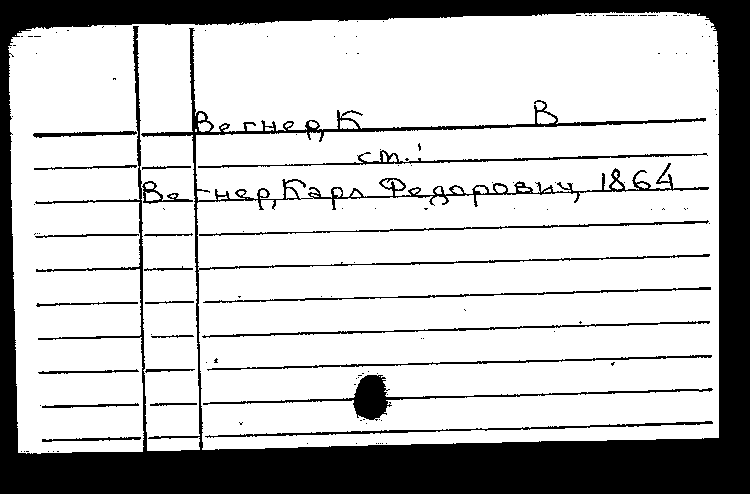 Вегнер, К В
ст.:
Вегнер, Карл Федорович, 1864